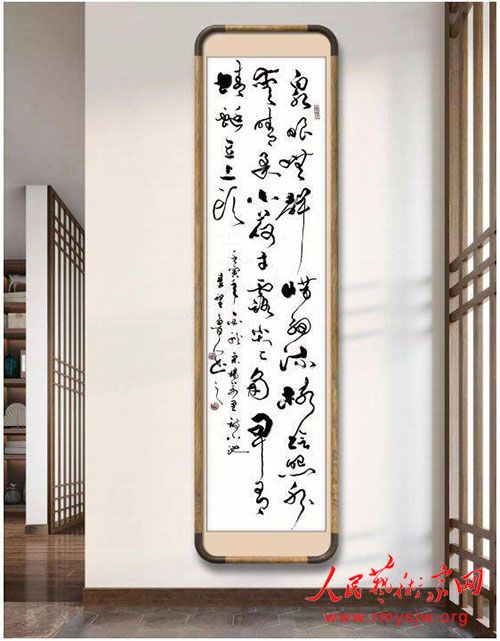 泉眼無聲惜細流樹陰照水
愛晴柔小荷才露尖尖角早有
蜻蜓立上頭
壬寅年 楊萬里詩小池
人民藝術家网
www.rmysjw.org